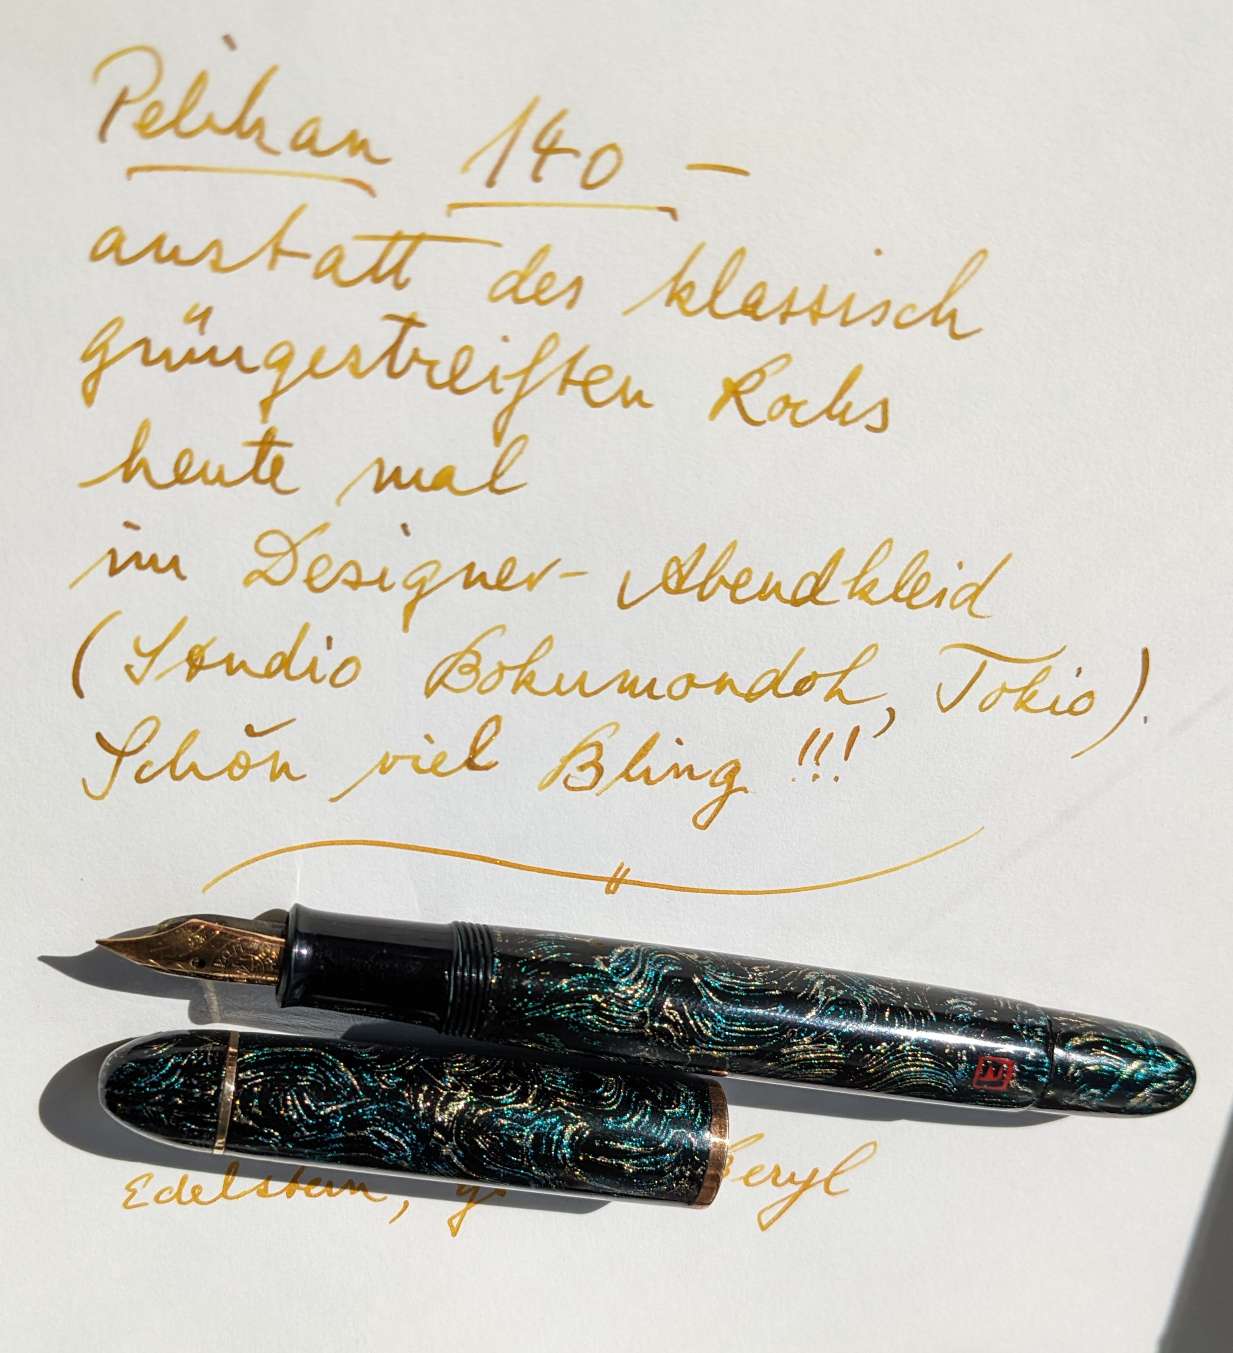 Pelikan 140 –
anstatt des klassisch
grüngestreiften Rocks
heute mal
im Designer-Abendkleid
(Studio Bokumondoh, Tokio).
Schön viel Bling !!!
Edelstein, Beryl